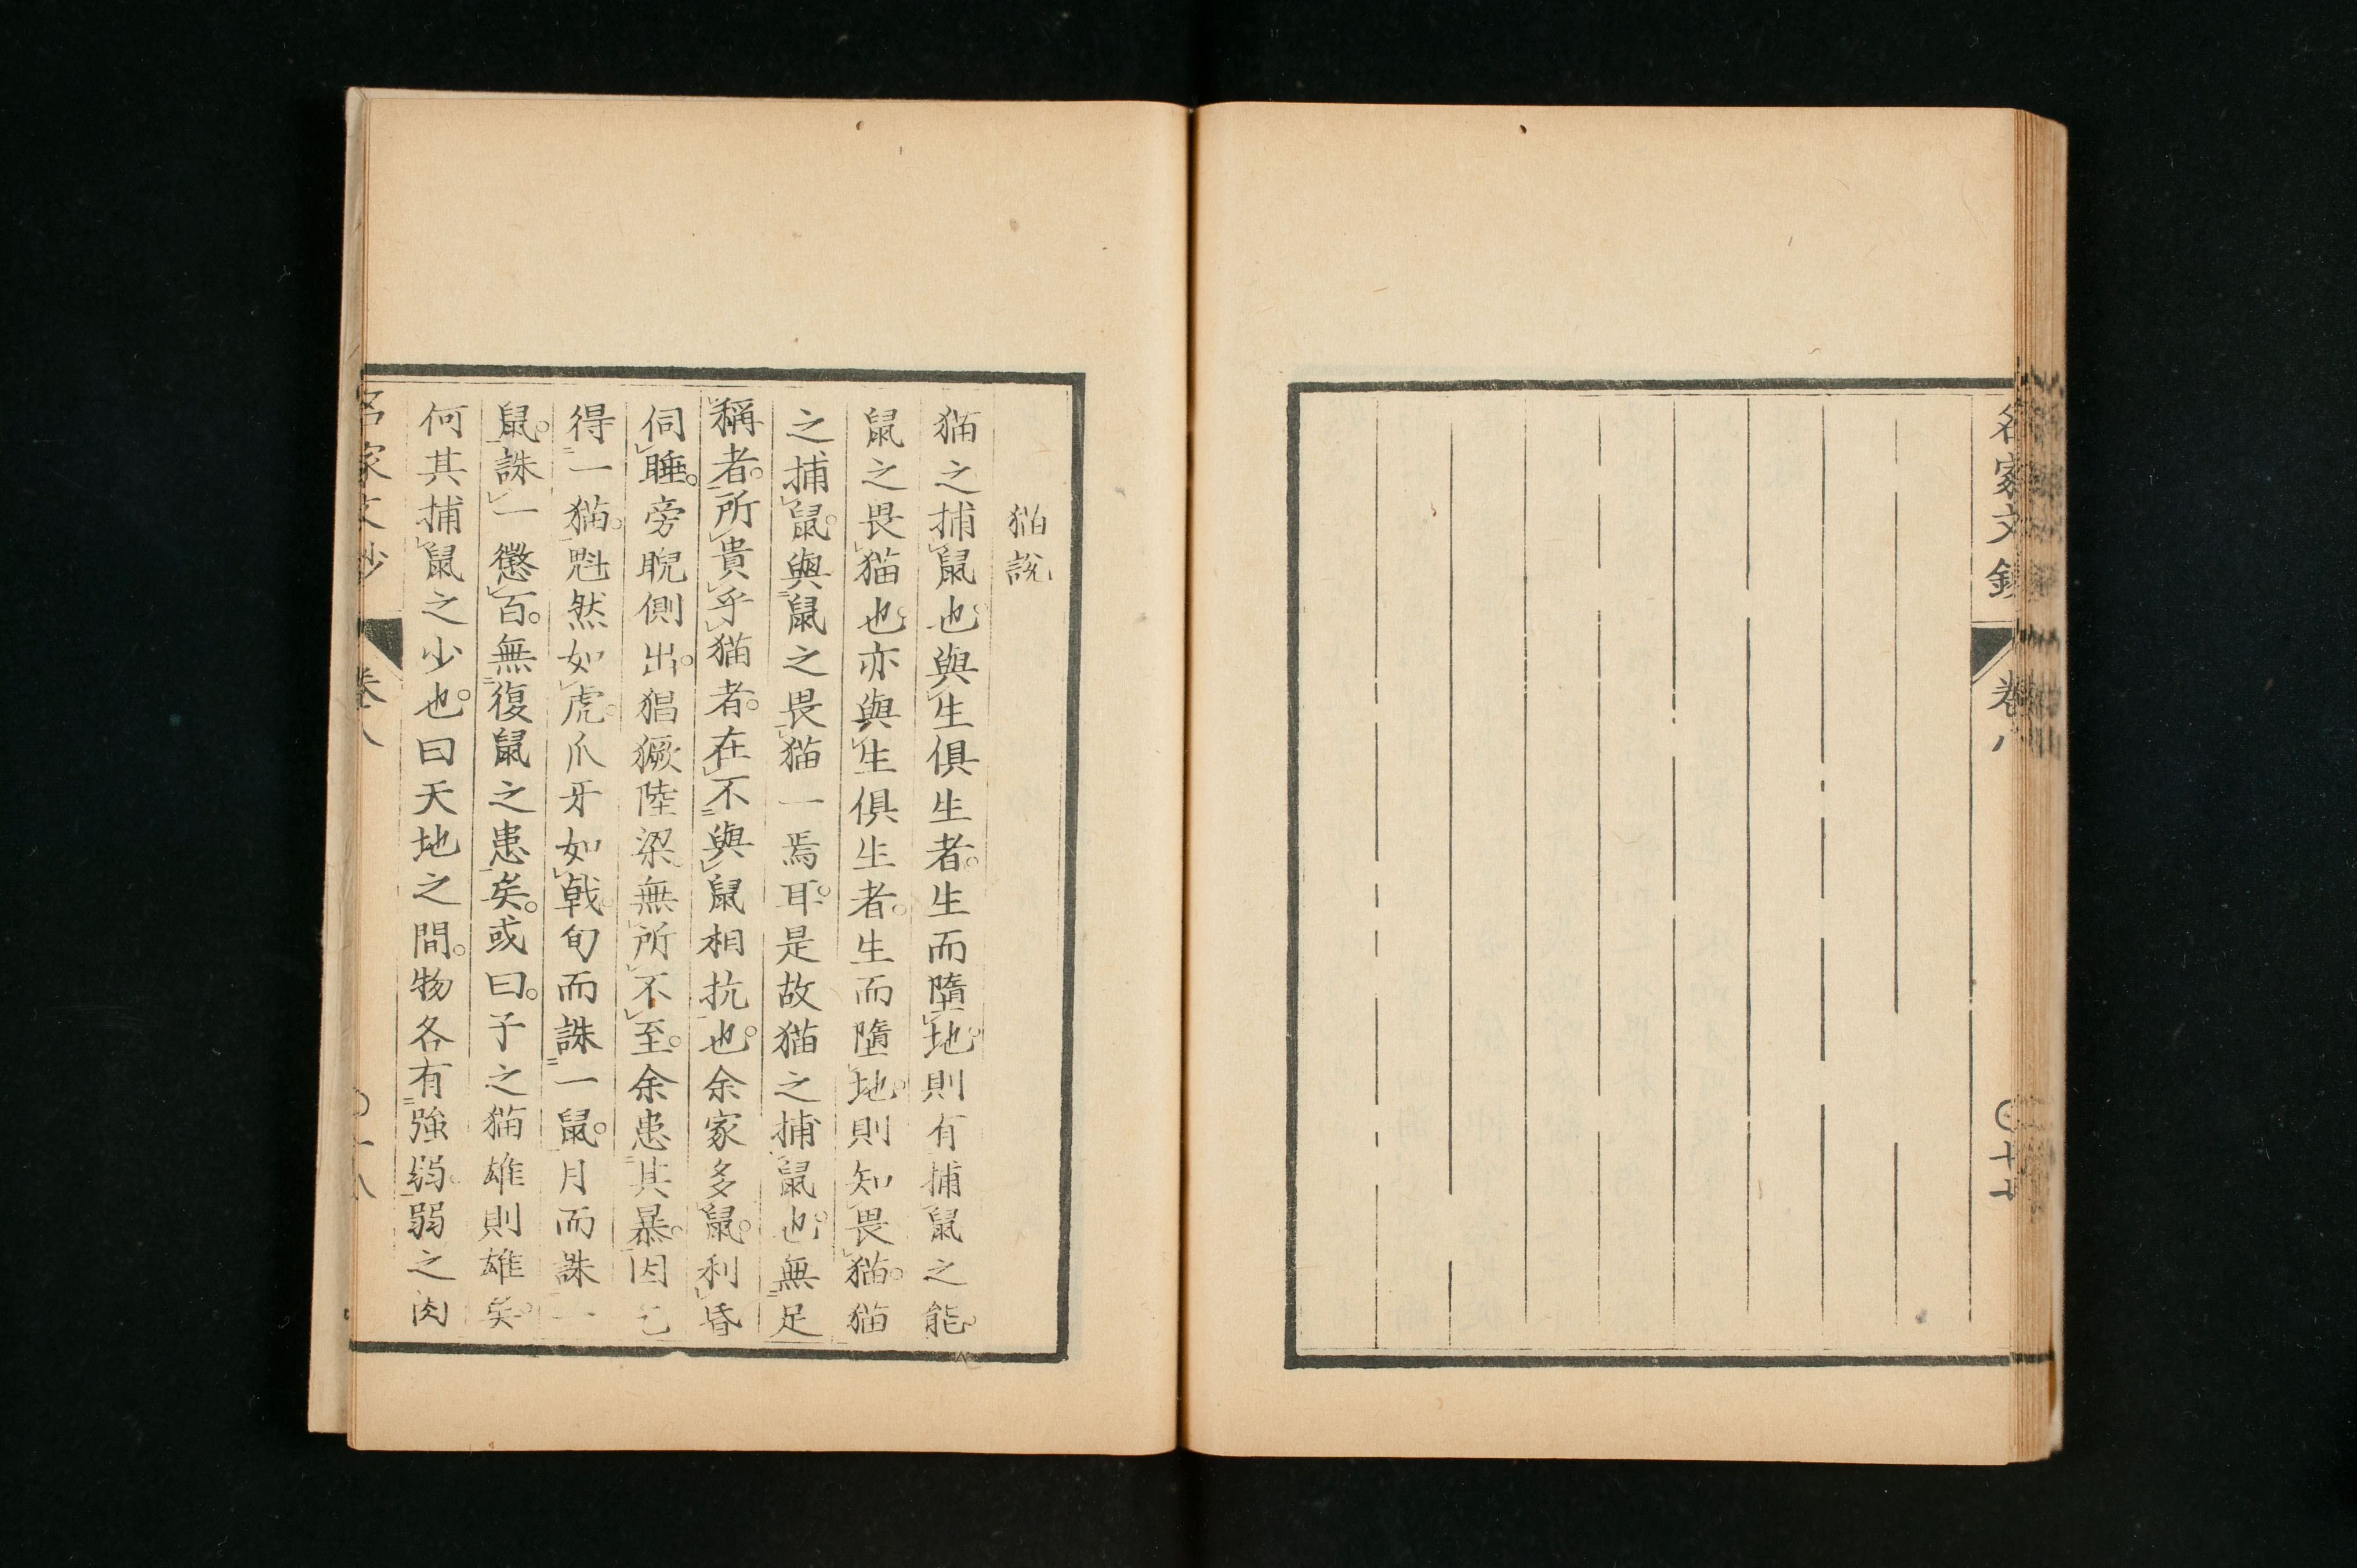 名家文鈔 卷八 〇十七
猫說
猫之捕鼠也與生俱生者。生而墮地。則有捕鼠之能。
鼠之畏猫也。亦與生俱生者。生而墮地。則知畏猫。猫
之捕鼠。與鼠之畏猫一焉耳。是故猫之捕鼠也。無足
稱者。所貴乎猫者。在不與鼠相抗也。余家多鼠。利昏
伺睡。旁睨側出。猖獗陸梁無所不至。余患其暴。因乞
得一猫。魁然如虎。爪牙如戟。旬而誅一鼠。月而誅一
鼠。誅一懲百。無復鼠之患矣。或曰。子之猫雄則雄矣。
何其捕鼠之少也。曰天地之間。物各有強弱。弱之肉
名家文鈔 卷八 〇十八